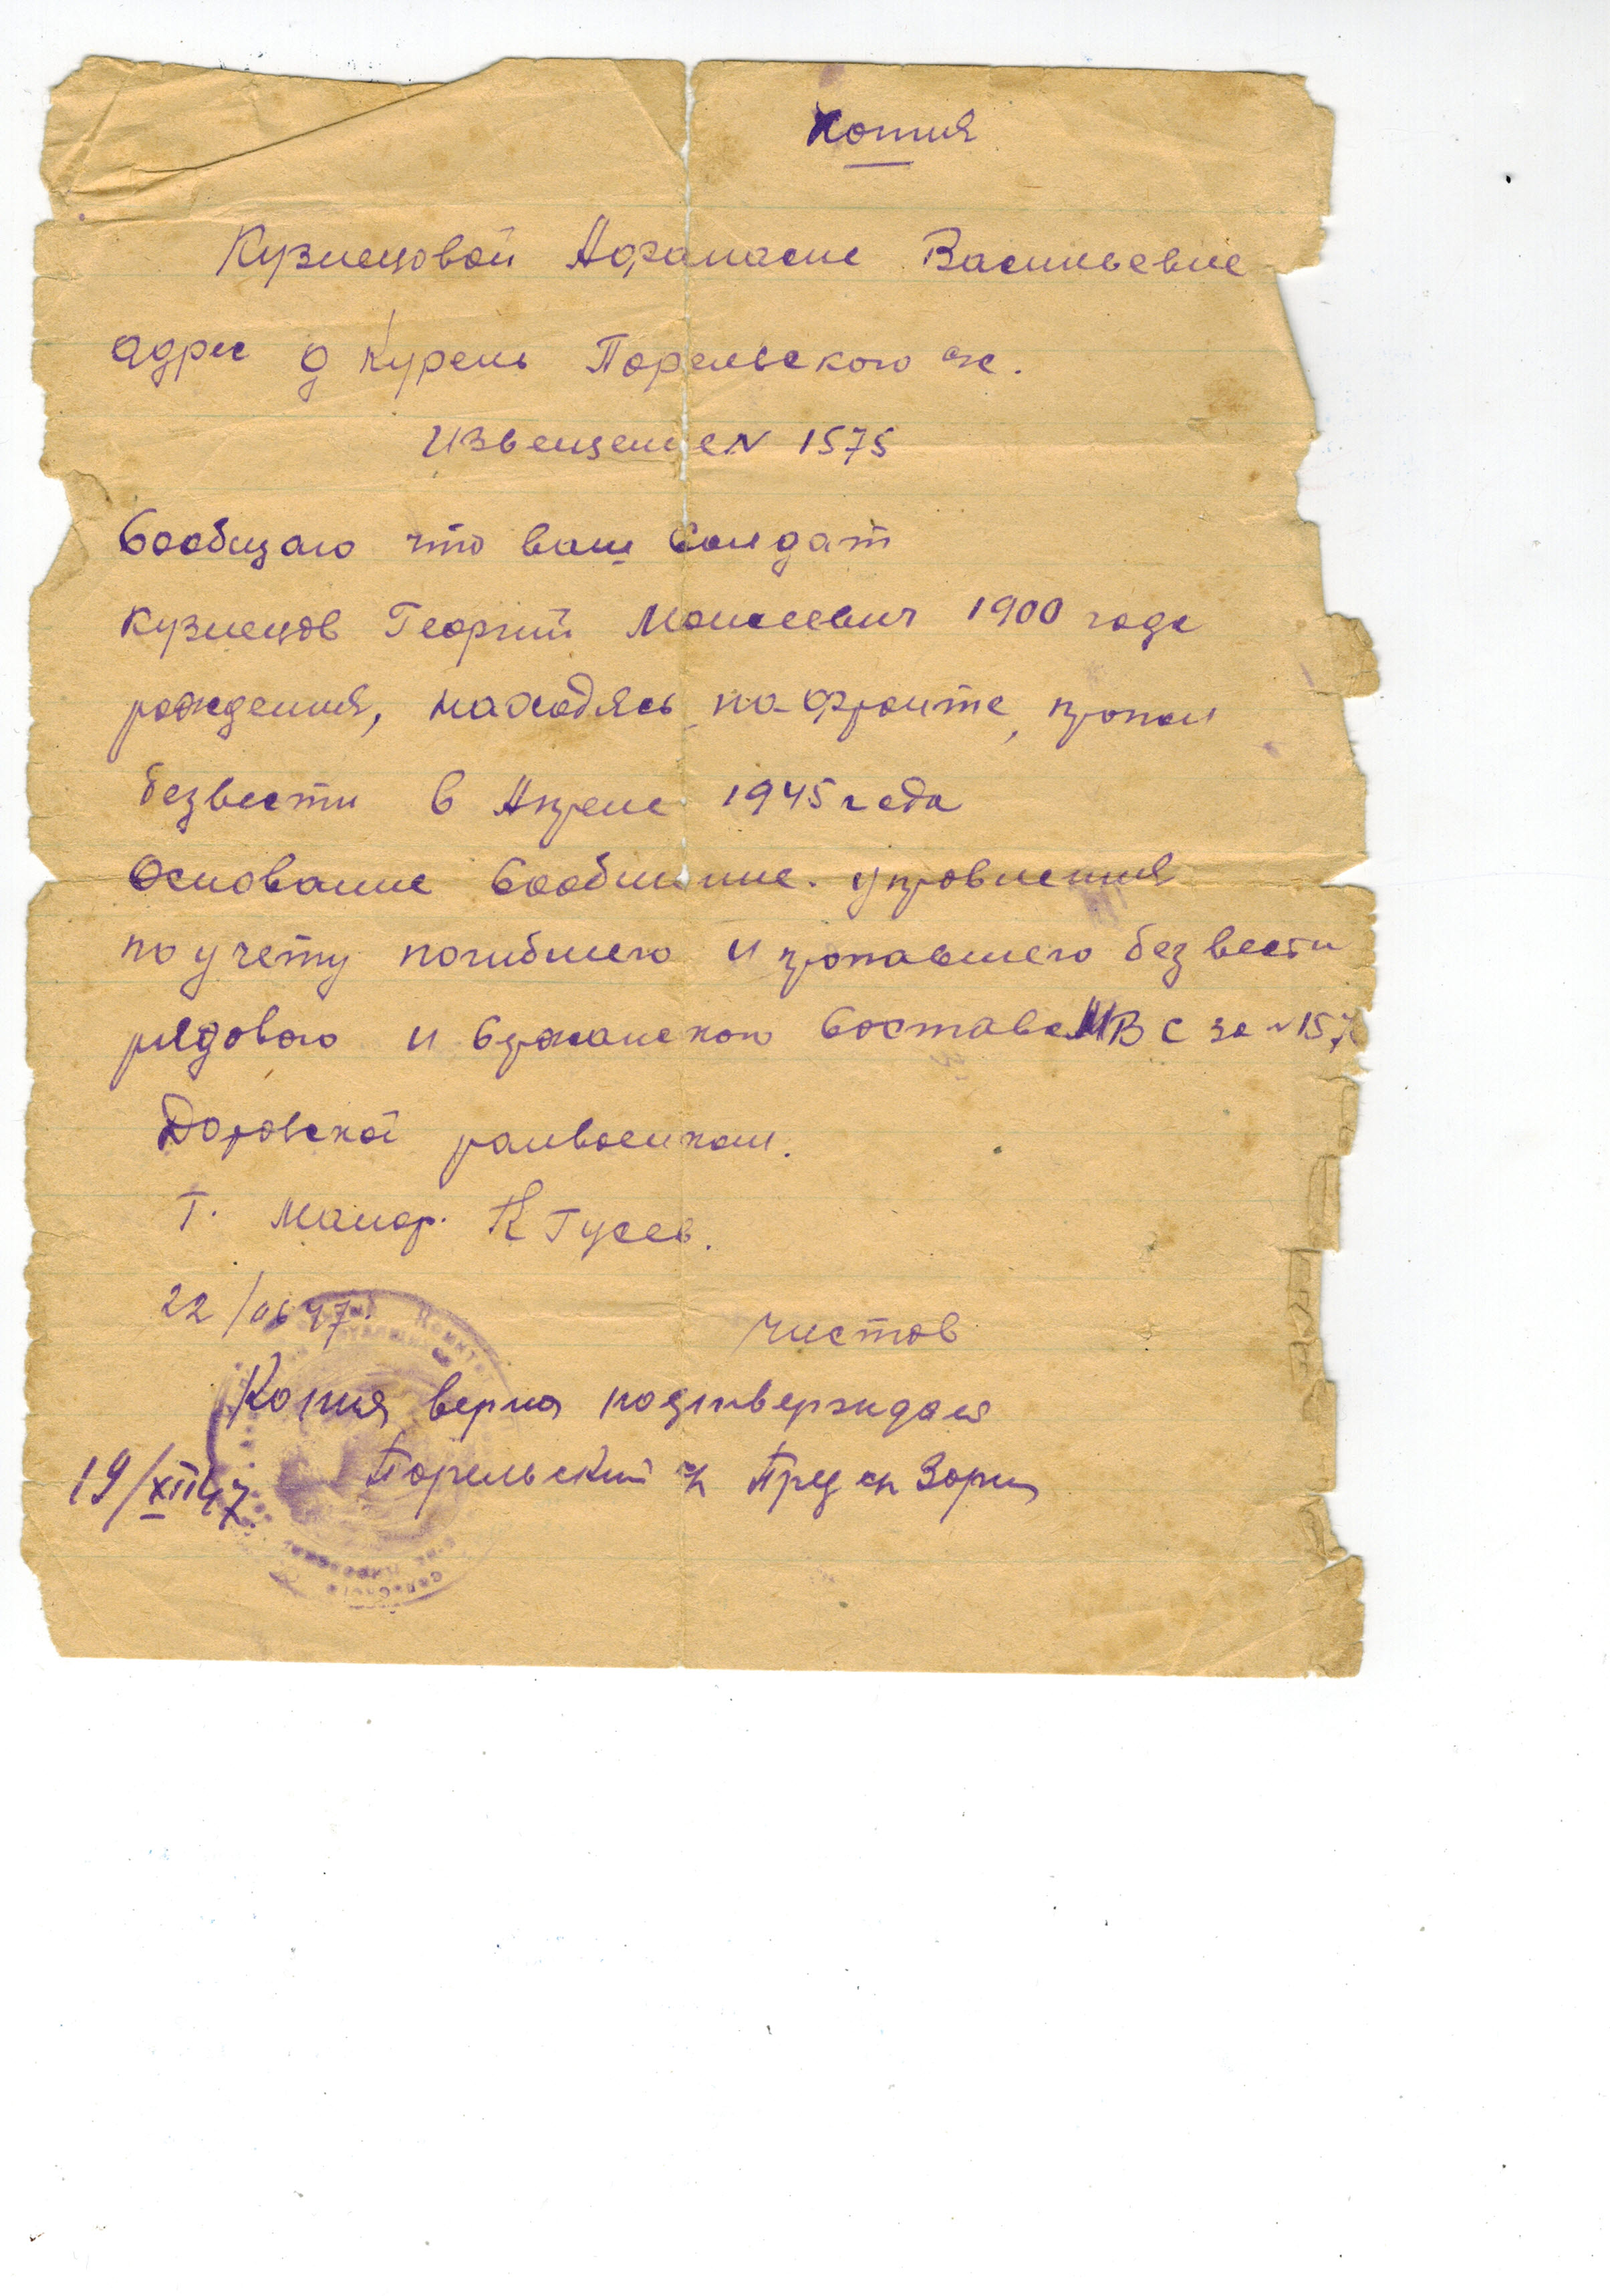 Копия
Кузнецовой Афанасие Васильевне
адрес д Курень Порельского с/с.
Извещение N 1575
Сообщаю что ваш Солдат
Кузнецов Георгий Моисеевич 1900 года
рождения, находясь на фронте, пропал
безвести в Апреле 1945 года
Основание Сообщение. управления
по учету погибшего и пропавшего без вести
рядового и Сержанского Состава МВС за N 157
Даровской райвоенком.
Т. Майор. К Гусев.
22/06 47.
Чистов
Копия верна подтверждаю
19/XII 47 Порельский с/с Пред сп Зорин